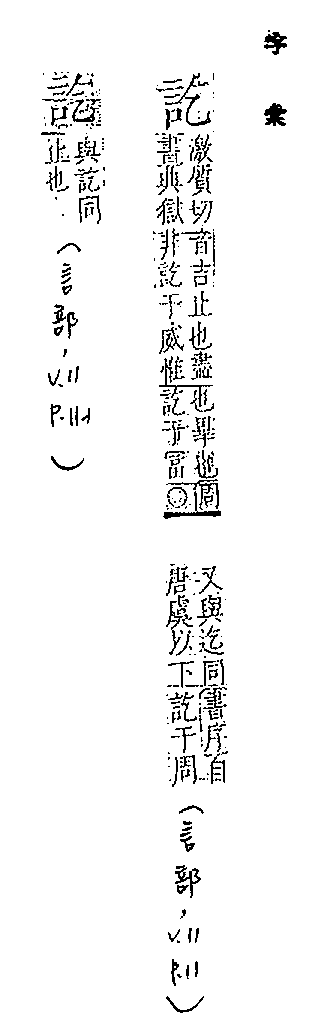 字彙
訖
激質切音吉止也盡也畢也周
書典獄非訖于威惟訖于富○
又與迄同書序自
唐虞以下訖于周
(言部, v.11 P.11)
與訖同
止也
(言部, v.11